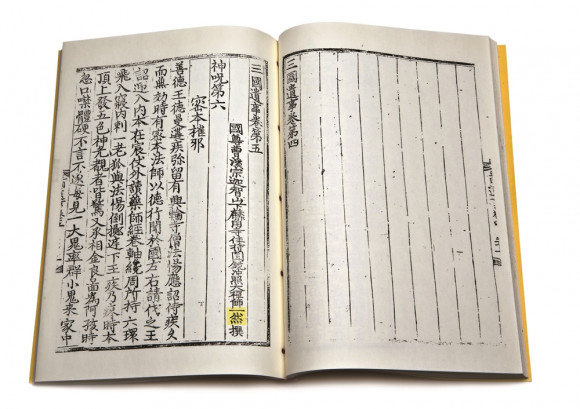 三國遺事卷第四
三國遺事卷第五
國尊曹溪宗迦智山下麟角寺住持圓鏡冲照大禪師一然撰
神呪第六
密本摧邪
善德王德曼遘疾弥留有興輪寺僧法惕應詔侍疾久
而無効時有密本法師以德行聞於國左右請代之王
詔迎入內本在宸仗外讀藥師經卷軸纔周所持六環
飛入寢內刺一老狐與法惕倒擲庭下王疾乃瘳時本
頂上發五色神光覩者皆驚又承相金良圖爲阿孩時
忽口噤體硬不言不遂每見一大鬼率群小鬼來家中